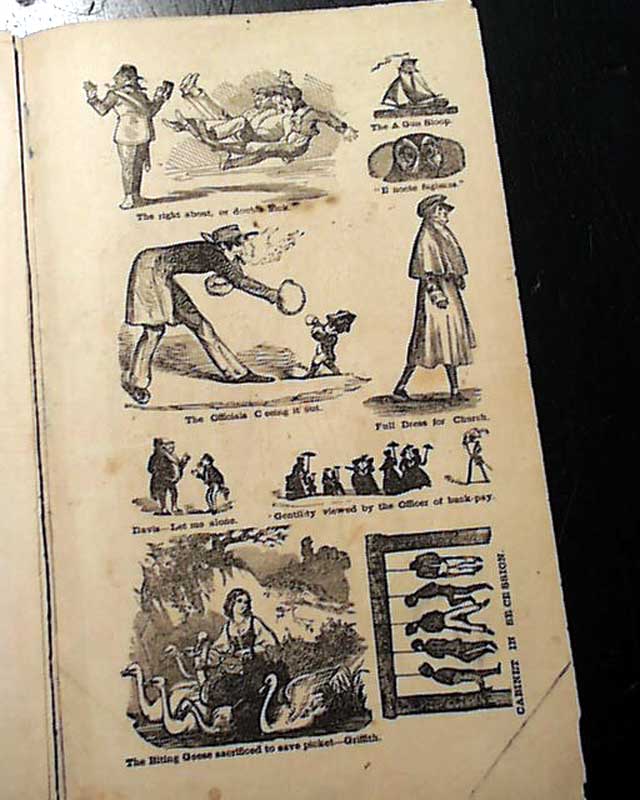 The A Gun Sloop.
"E nocte fugiens."
The right about, or double kick.
The Officials C oeing it out.
Full Dress for Church.
Davis—Let me alone.
Gentility viewed by the Officer of back-pay.
CABINET IN SECESSION.
The Biting Geese sacrificed to save picket—Griffith.